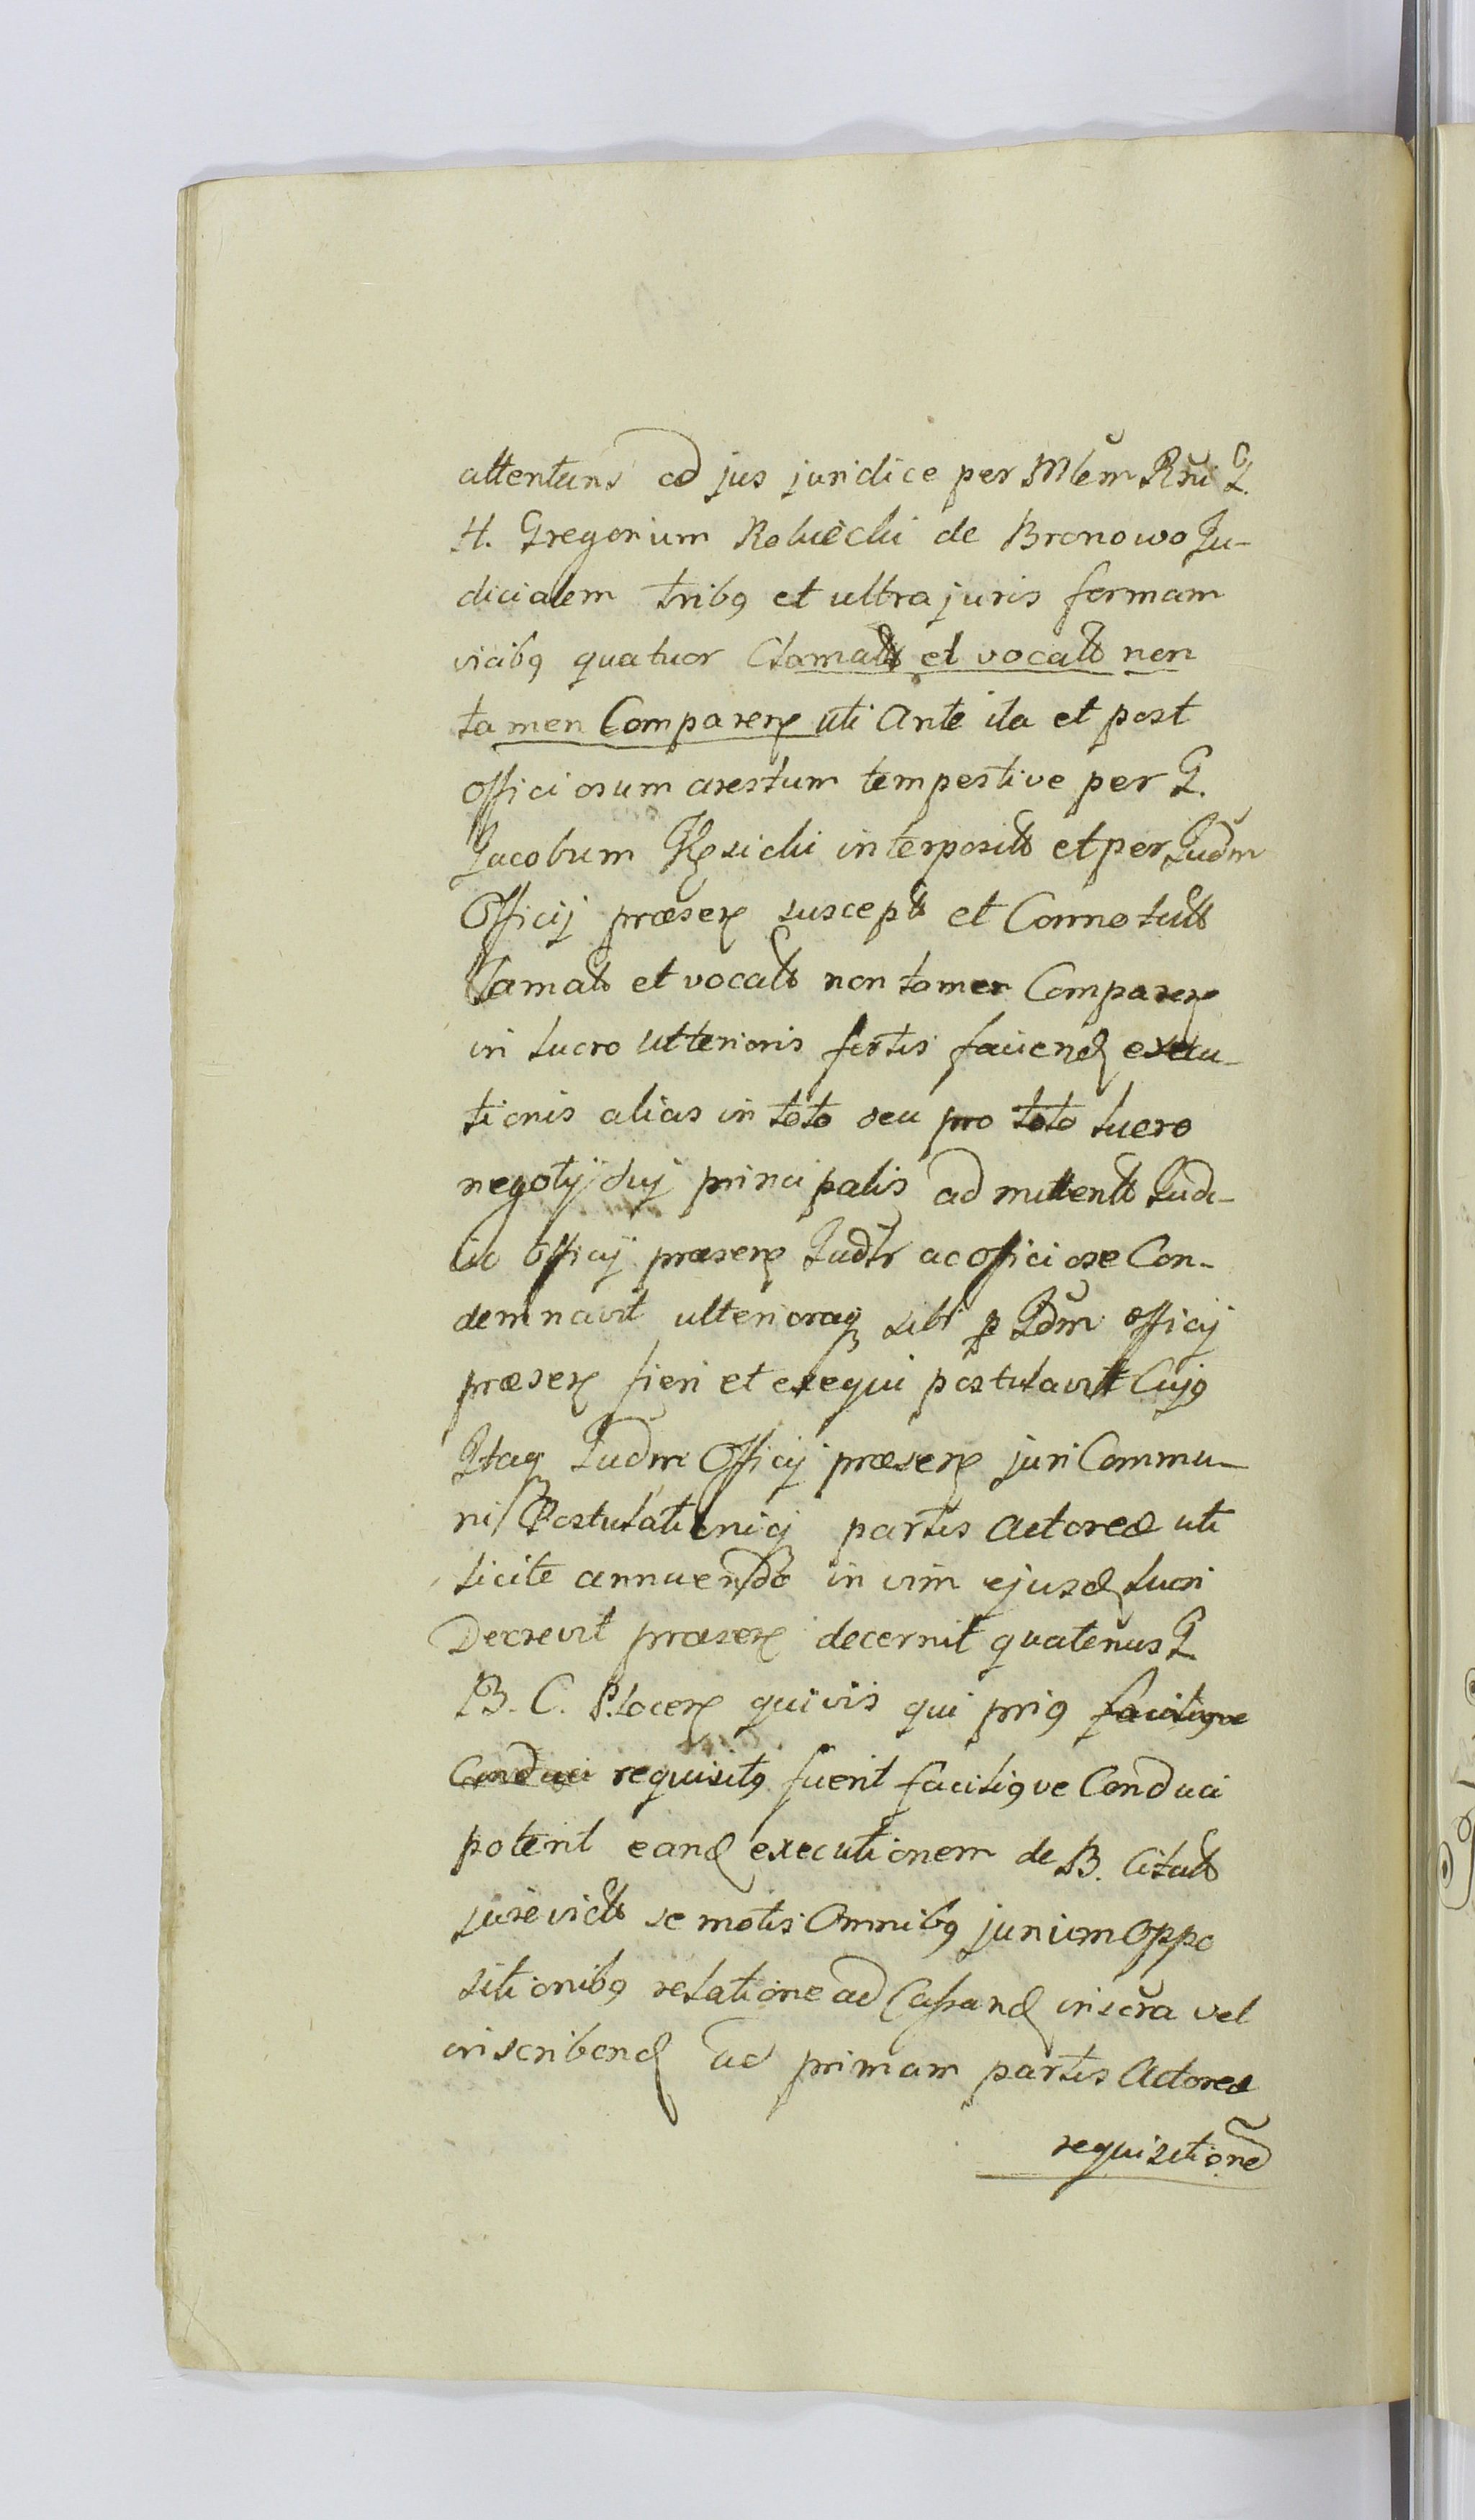 attentans ad jus juridice per Mlem Rnu G.
H. Gregorium de Bronowo Ju-
dicialem tribq et ultra juris formam
vicibq quatuor Clamatt et vocatt non
tamen Comparen uti Ante ita et post
officiosum arestum tempestive per G.
Jacobum interpositt et per Judm
Officij præsen suscept et Connotatt
Clamatt et vocatt non tamen Comparen
in lucro ulterioris fortis faciend execu-
tionis alias in toto seu pro toto lucro
negotÿ sui principalis admittentt Judi-
cio Officij præsen Judlr ac officiose Con-
demnavit ulterioraq sibi p Jdm officij
præsen fieri et exequi postulavit Cujq
Itaq Judm Officij præsen juri Commu-
ni Postulationiq partis Actoreæ uti
licite annuendo in vim ejusd lucri
Decrevit præsen decernit quatenus G
B. C. P. locen quivis qui priq faciliqve
Conduci requisitq fuerit faciliqve Conduci
poterit eand executionem de B. Citatt
jurevictt semotis Omnibq jurium Oppo
sitionibq relatione ad Cassand inscra vel
inscribend ad primam partis Actoreæ
requisitione